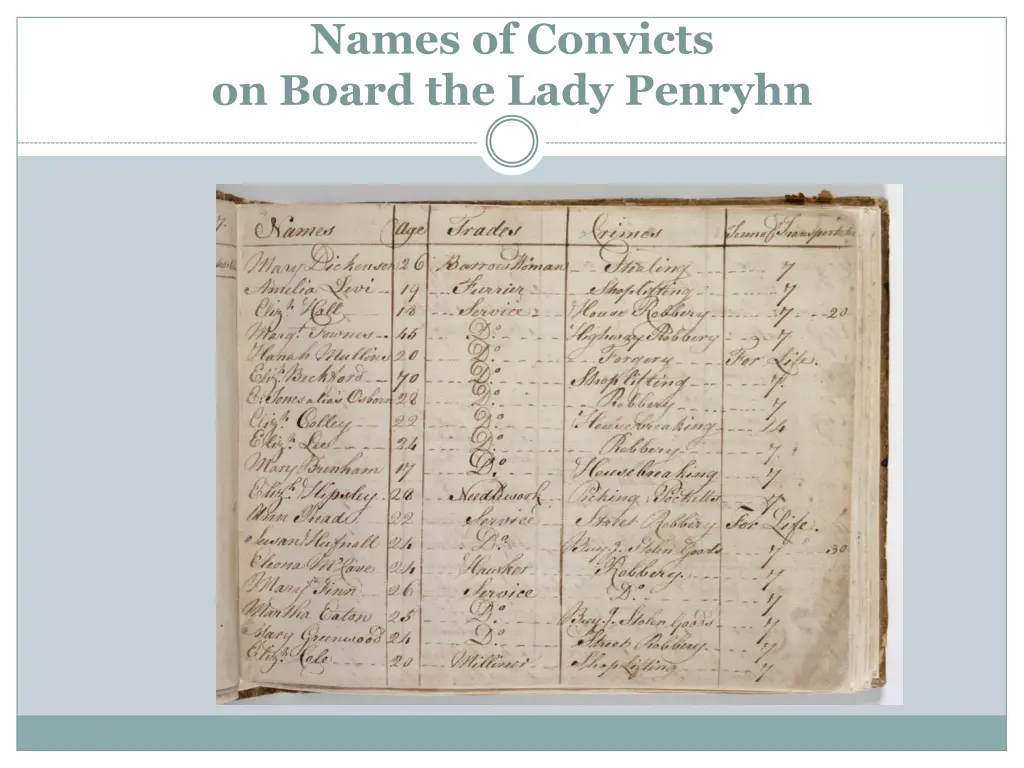 Names of Convicts
on Board the Lady Penryhn
7. Names Age Trades Crimes Term of Transportation
Mary Dickenson 26 Barrow Woman Stealing 7
Amelia Levi 19 Furrier Shoplifting 7
Elizh. Hall 18 Service House Robbery 7 20
Margt. Townes 45 Do. Highway Robbery 7
Hanah Mullins 20 Do. Forgery For Life.
Eliz. Beckford 70 Do. Shoplifting 7
E. Jones alias Osborn 28 Do. Robbery 7
Elizh. Colley 22 Do. Housebreaking 14
Elizh. Lee 24 Do. Robbery 7
Mary Burnham 17 Do. Housebreaking 7
Elizh. Hipsley 28 Needlework Picking Pocketts 7
Ann 22 Service Street Robbery For Life.
Susan Hufnall 24 Do. Buyg. Stolen Goods 7 30
McCave 24 Hawker Robbery 7
Mary Finn 26 Service Do. 7
Martha Eaton 25 Do. Buyg. Stolen Goods 7
Mary Greenwood 24 Do. Street Robbery 7
Elizh. Cole 20 Milliner Shoplifting 7